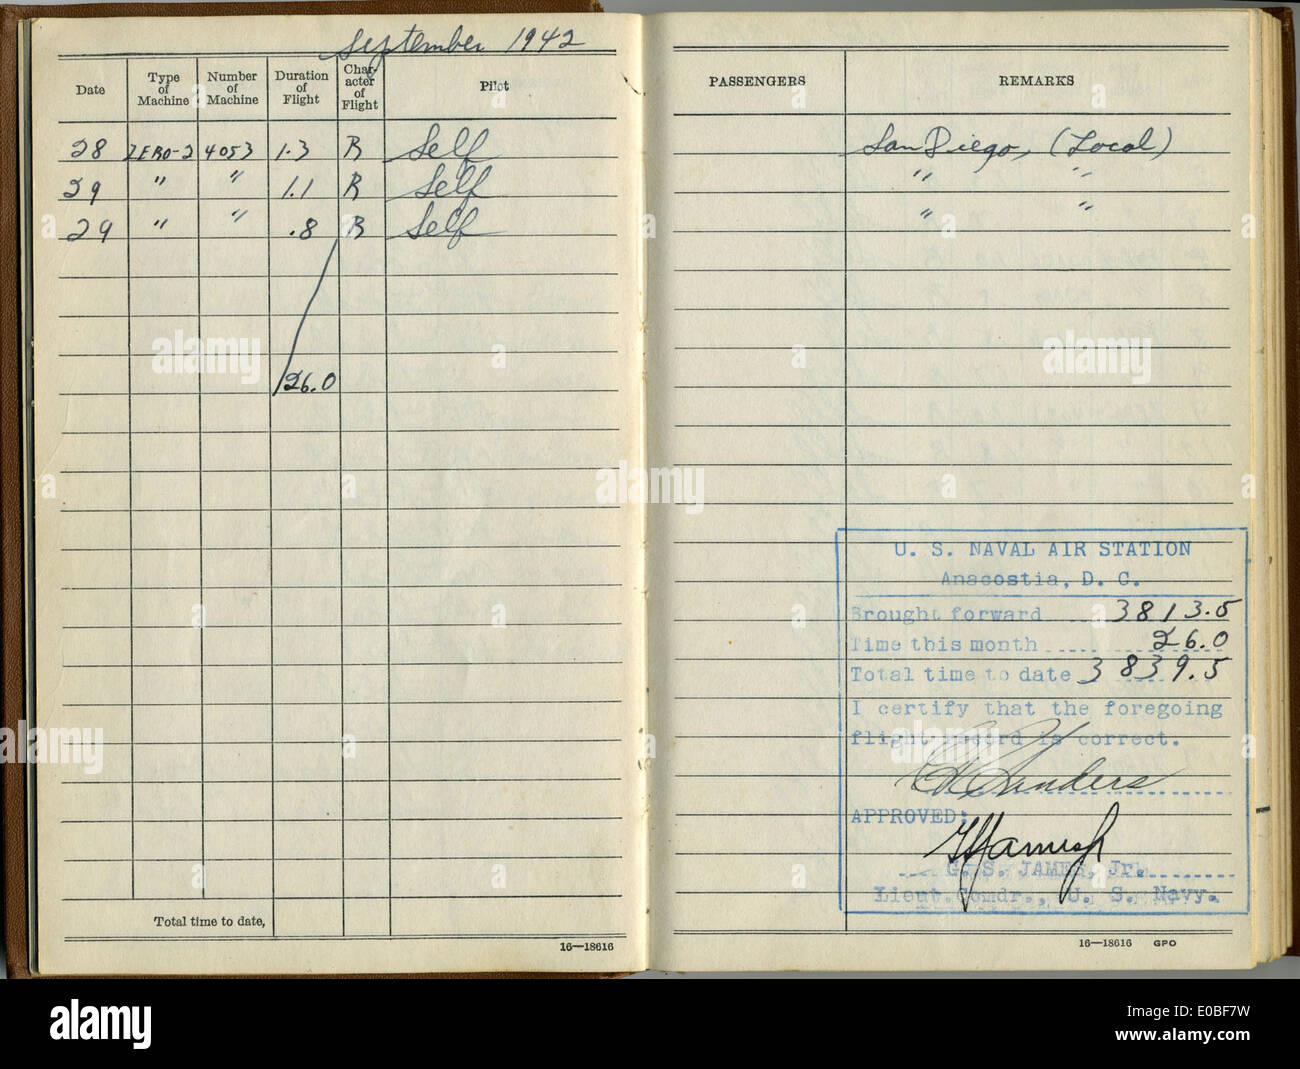 September 1942
Date Type of Machine Number of Machine Duration of Flight Character of Flight Pilot
28 ZERO-2 4053 1.3 R Self
29 " " 1.1 R Self
29 " " .8 R Self
26.0
Total time to date,
16—18616
PASSENGERS REMARKS
San Diego, (Local)
" "
" "
U. S. NAVAL AIR STATION
Anacostia, D. C.
Brought forward 3813.5
Time this month 26.0
Total time to date 3839.5
I certify that the foregoing
flight record is correct.
Sanders
APPROVED:
G. S. JAMES, Jr.
Lieut. Comdr., U. S. Navy.
16—18616 GPO
alamy
a
alamy stock photo
E0BF7W
www.alamy.com